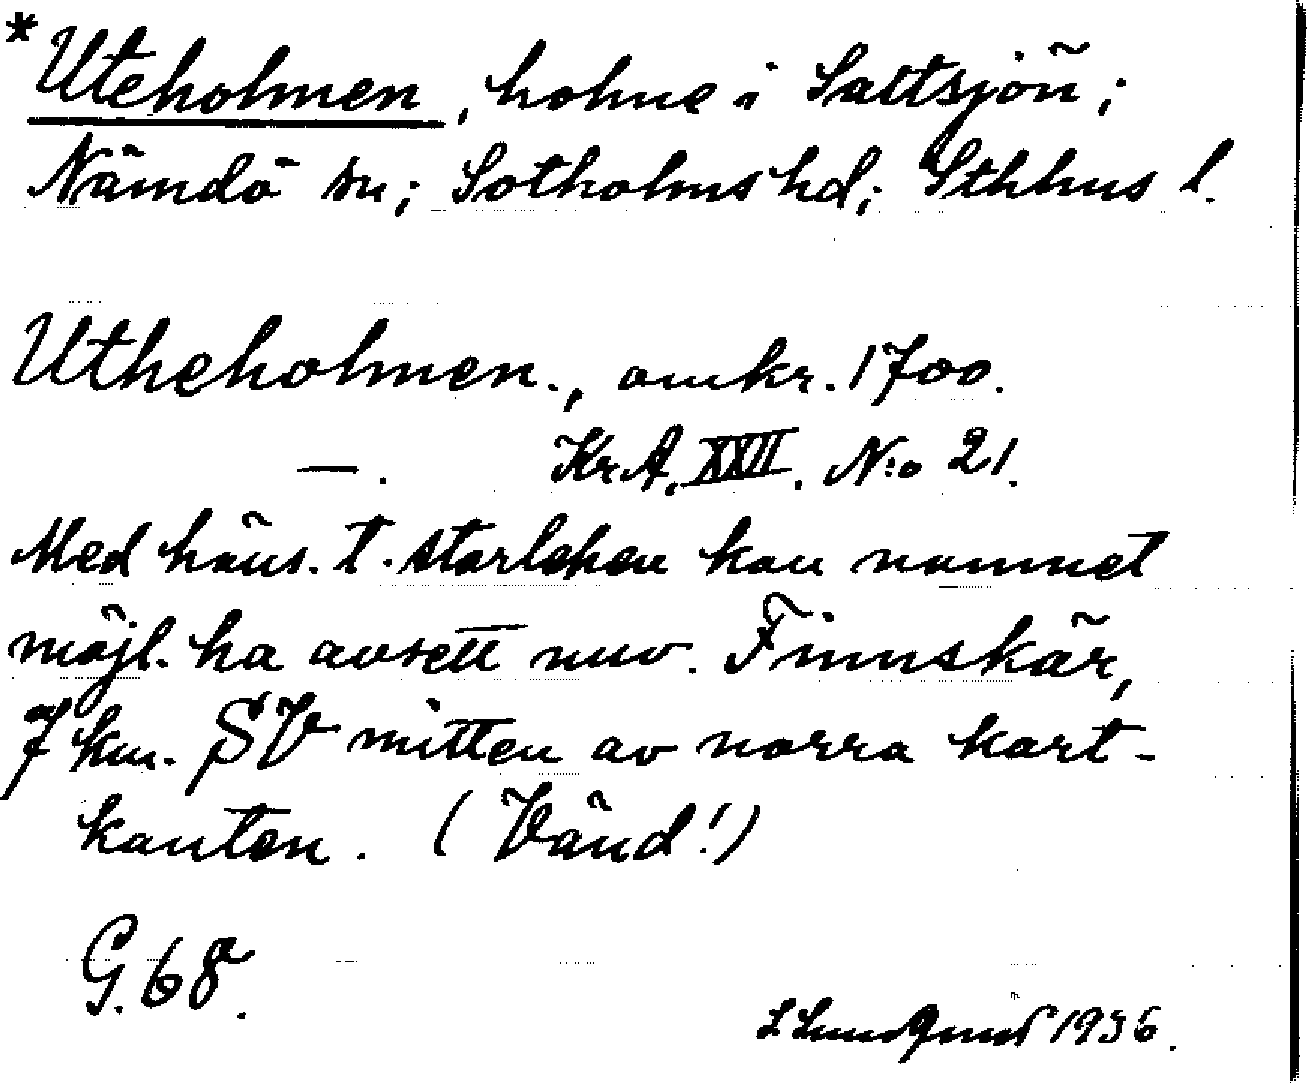 *Uteholmen, holme i Saltsjön;
Nämdö sn; Sotholms hd; Sthlms l.
Utheholmen., omkr. 1700.
—. Kr.A. XXII. N:o 21.
Med häns. t. storleken kan namnet
möjl. ha avsett nuv. Finnskär,
7 km. SV mitten av norra kart-
kanten. (Vänd!)
G. 68.
L Lundquist 1936.